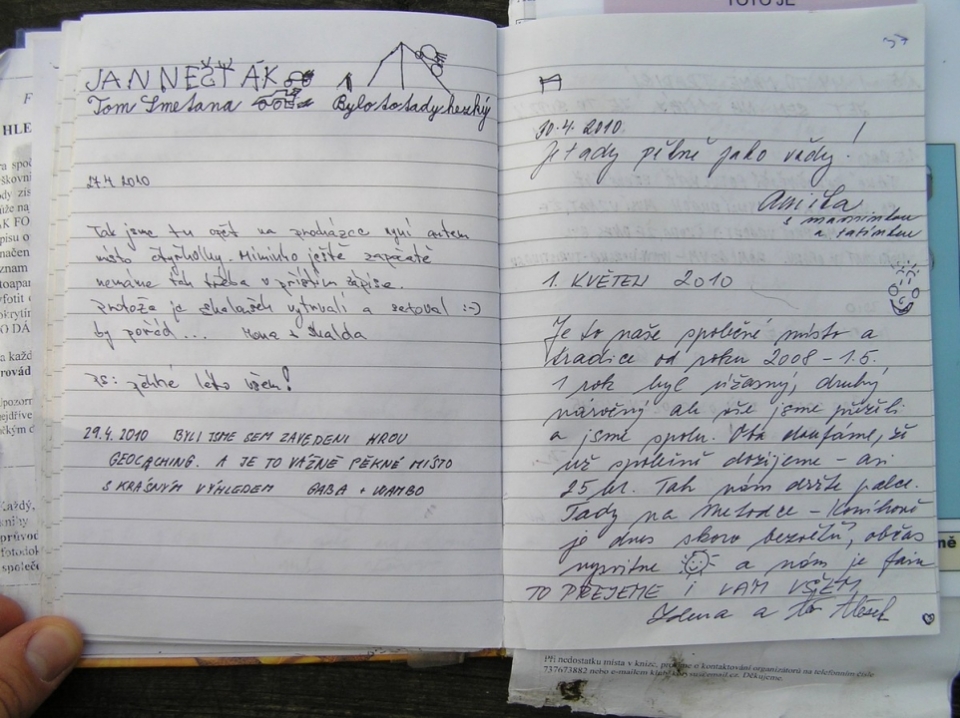 TOTO JE
JAN NEŠŤÁK
Tom Smetana Bylo to tady hezký
27.4. 2010
Tak jsme tu opět na procházce nyní autem
místo čtyřkolky. Miminko ještě započaté
nemáme tak třeba v příštím zápise.
protože je
by pořád ... + Skalda
PS: pěkné léto všem!
29.4. 2010 BYLI JSME SEM ZAVEDENI HROU
GEOCACHING. A JE TO VÁŽNĚ PĚKNÉ MÍSTO
S KRÁSNÝM VÝHLEDEM GABA + WAMBO
30.4. 2010
Je tady pěkně jako vždy!
Anička
s maminkou
a tatínkem
1. KVĚTEN 2010
Je to naše společné místo a
tradice od roku 2008 – 1.5.
1 rok byl úžasný, druhý
náročný ale vše jsme přežili
a jsme spolu. Oba doufáme, že
už společně dožijeme – asi
25 let. Tak nám držte palce.
Tady na Metodce –
je dnes skoro bezvětří, občas
vysvitne a nám je fajn
TO PŘEJEME I VÁM VŠEM
Zdena a
Při nedostatku místa v knize, prosíme o kontaktování organizátorů na telefonním čísle
737673882 nebo e-mailem Děkujeme.